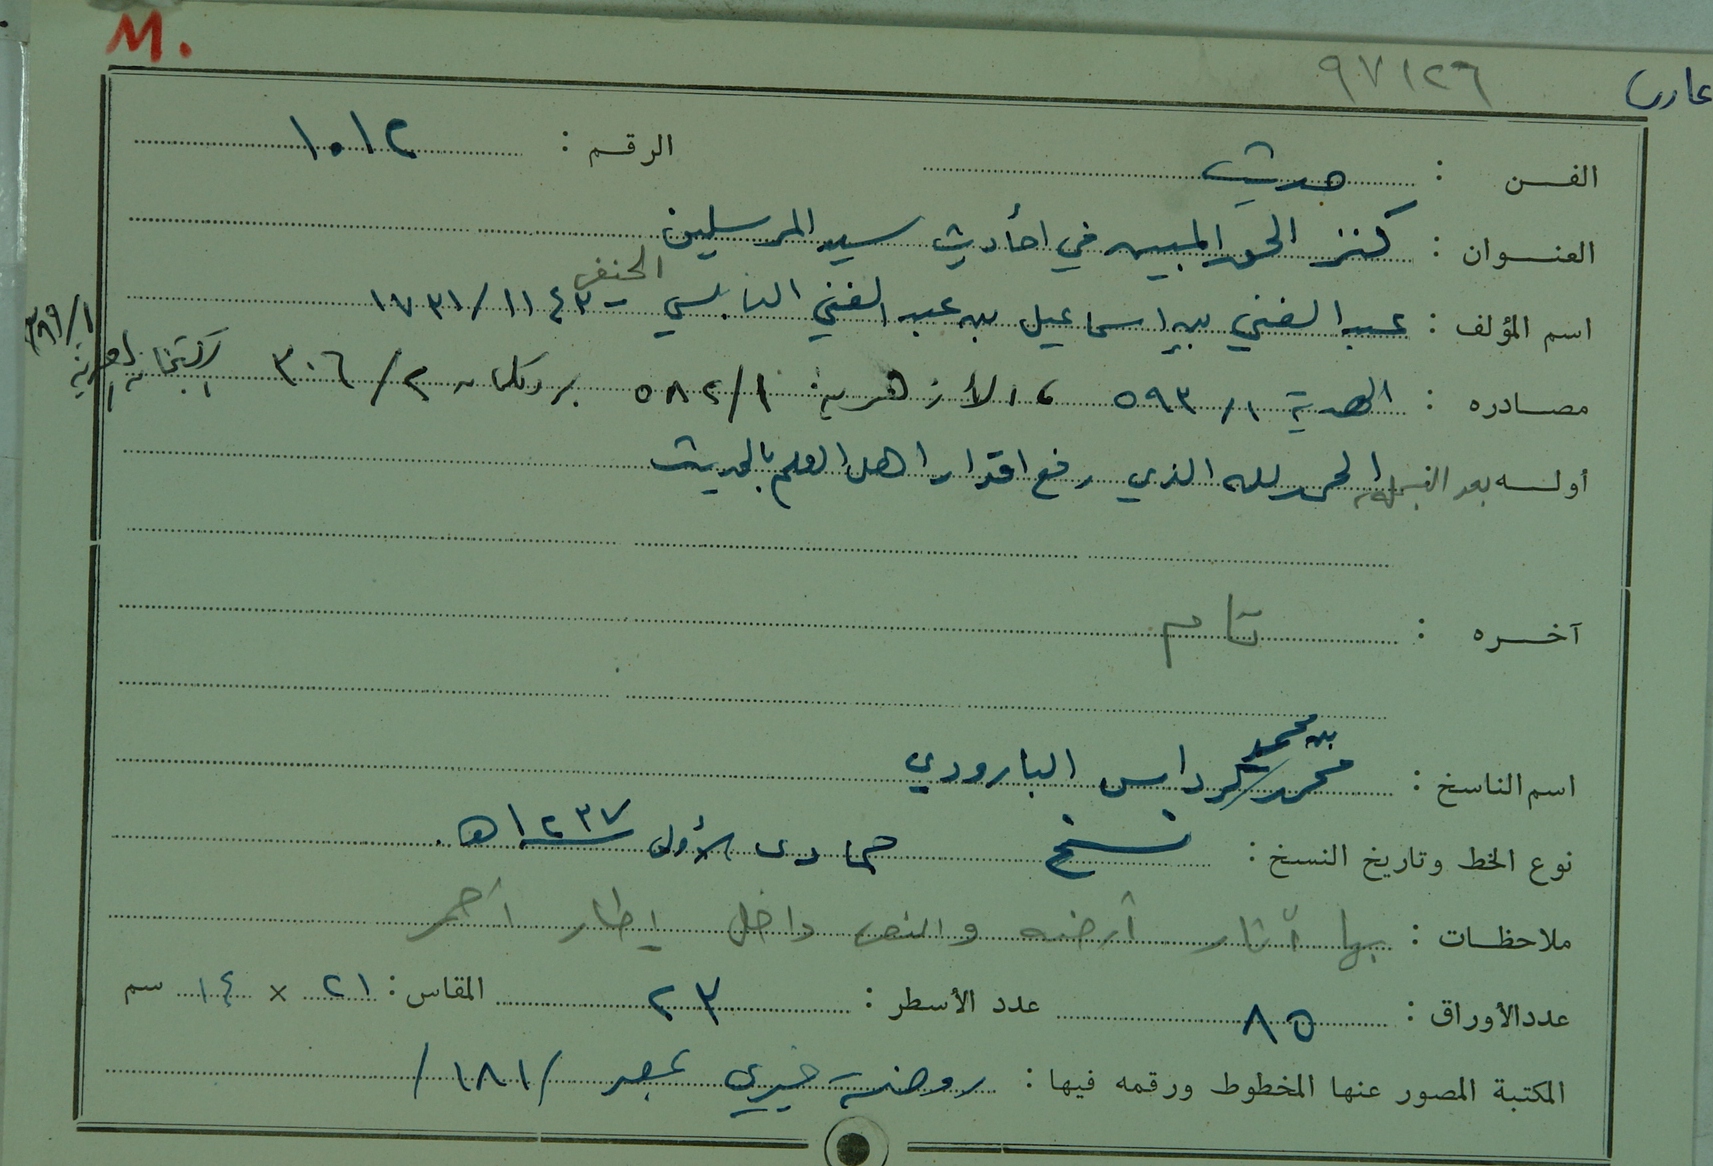 M.
٩٧١٢٦
الفن : حديث الرقم : ١٠١٢
العنوان : كنز الحق المبين في أحاديث سيد المرسلين
اسم المؤلف : عبد الغني بن إسماعيل بن عبد الغني النابلسي الحنفي - ١١٤٣/١٧٣١
مصادره : الهدية ٥٩٣/١ ، الأزهرية: ٥٨٢/١ بروكلمان ٣٠٦/٢ ٣٨٩/١
أوله بعد البسملة : الحمد لله الذي رفع اقدار اهل العلم بالحديث
آخره : تام
اسم الناسخ : محمد بن محمد كرداس البارودي
نوع الخط وتاريخ النسخ : نسخ جمادى الأولى ١٢٣٧ هـ.
ملاحظات : بها آثار أرضه والنص داخل إطار أحمر
عدد الأوراق : ٨٥ عدد الأسطر : ٢٣ المقاس : ٢١ × ١٤ سم
المكتبة المصور عنها المخطوط ورقمه فيها : روضة خيري بمصر /١٨١/